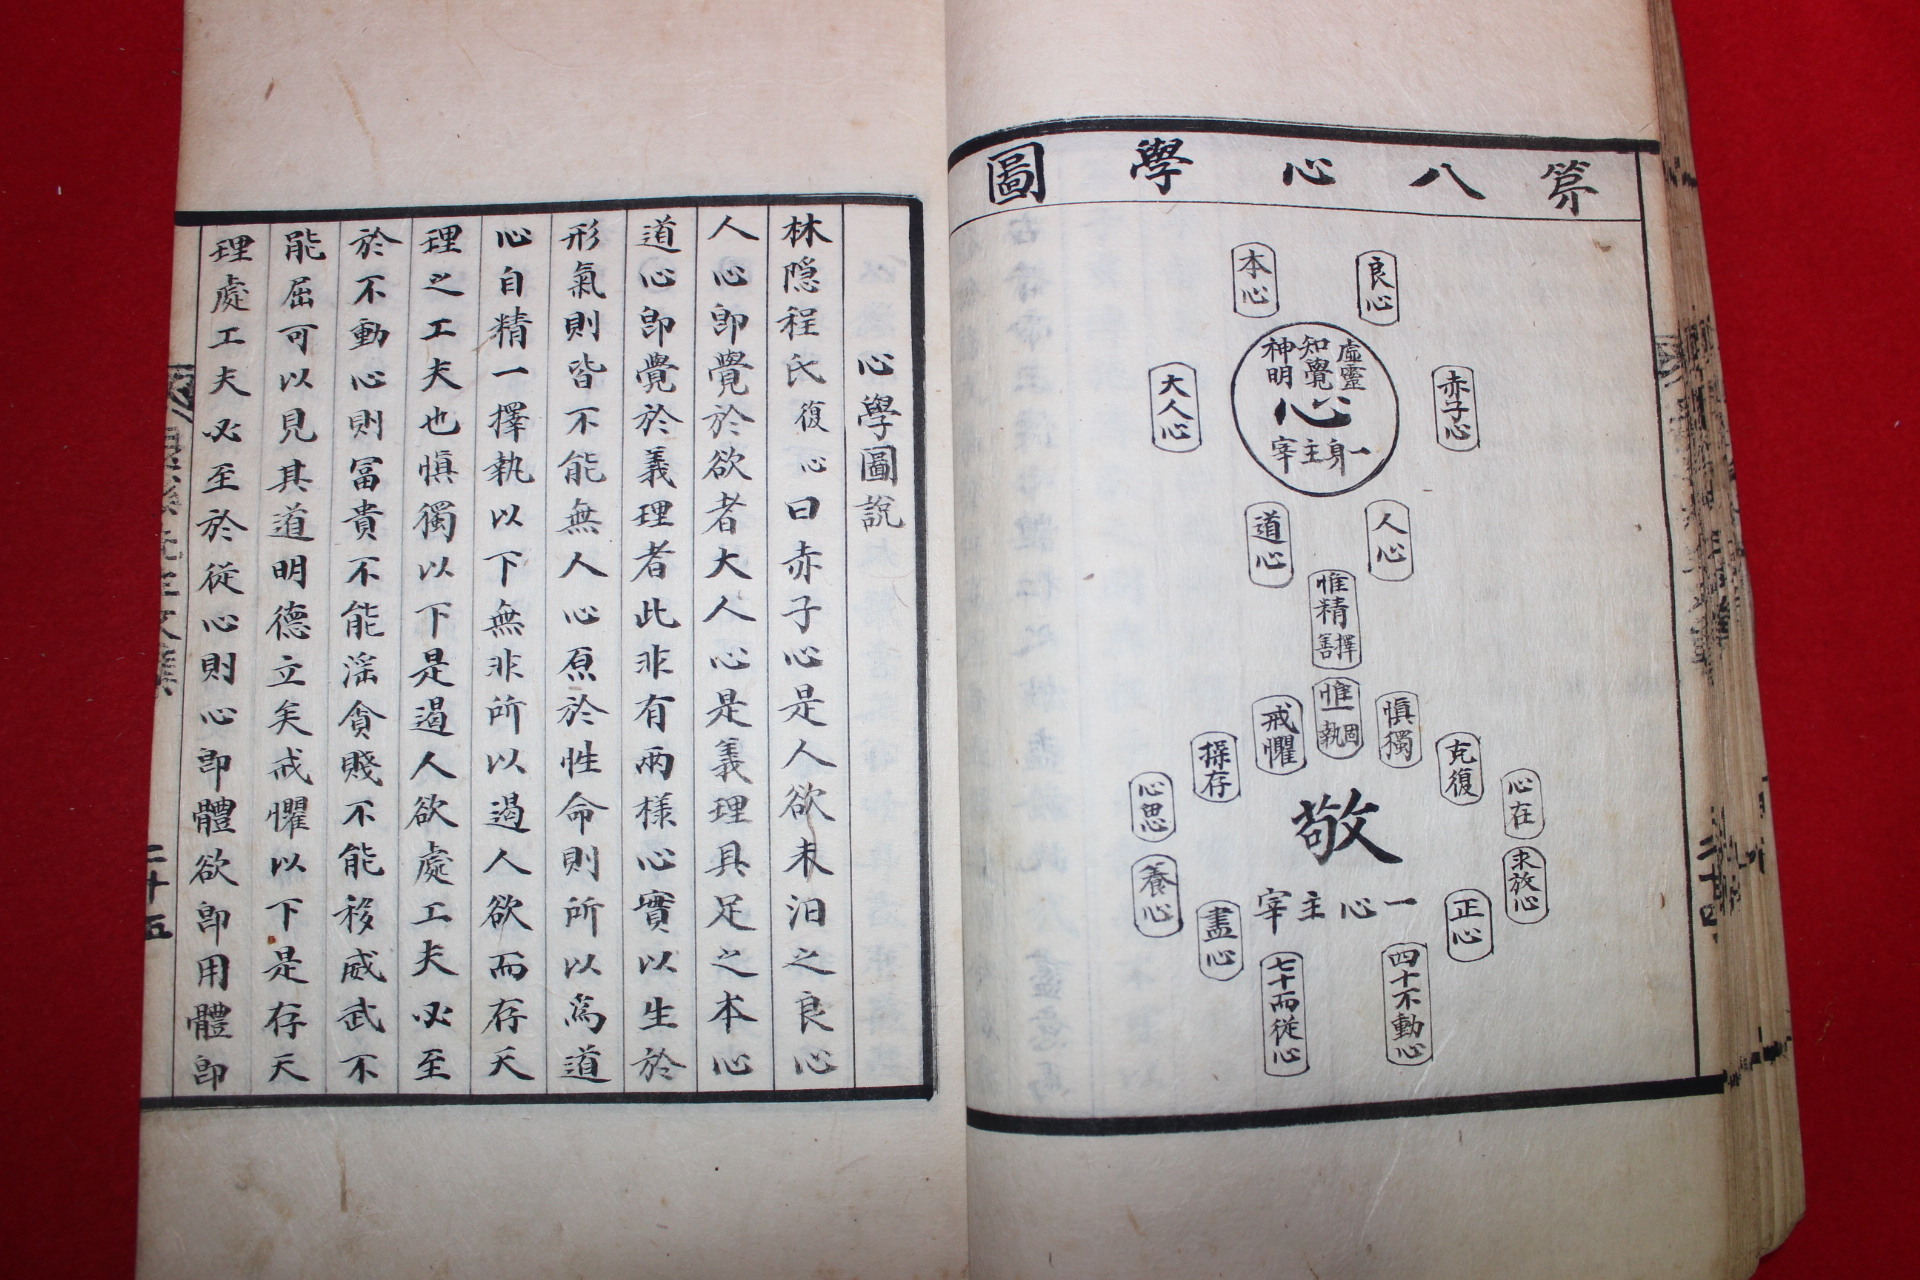 第八心學圖
良心
本心
赤子心
大人心
虛靈
知覺
神明
心
一身主宰
人心
道心
惟精
擇善
惟一
固執
愼獨
戒懼
克復
操存
心在
心思
求放心
養心
敬
一心主宰
正心
盡心
四十不動心
七十而從心
心學圖說
林隱程氏復心曰赤子心是人欲未汨之良心
人心卽覺於欲者大人心是義理具足之本心
道心卽覺於義理者此非有兩樣心實以生於
形氣則皆不能無人心原於性命則所以爲道
心自精一擇執以下無非所以遏人欲而存天
理之工夫也愼獨以下是遏人欲處工夫必至
於不動心則富貴不能淫貪賤不能移威武不
能屈可以見其道明德立矣戒懼以下是存天
理處工夫必至於從心則心卽體欲卽用體卽
二十五